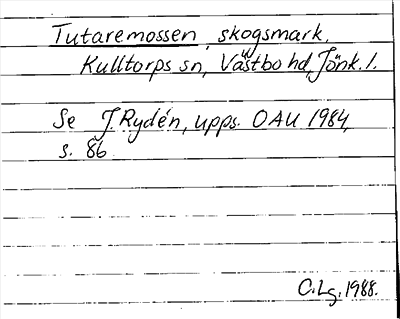 Tutaremossen, skogsmark,
Kulltorps sn, Västbo hd, Jönk. l.
Se J. Rydén, upps. OAU 1984,
s. 86
C. Lg, 1988.